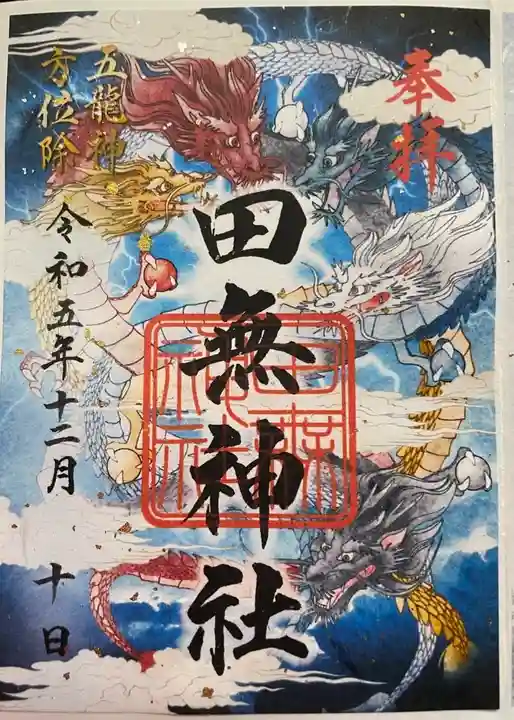 奉拝
田無神社
田無神社
五龍神
方位除
令和五年十二月 十日